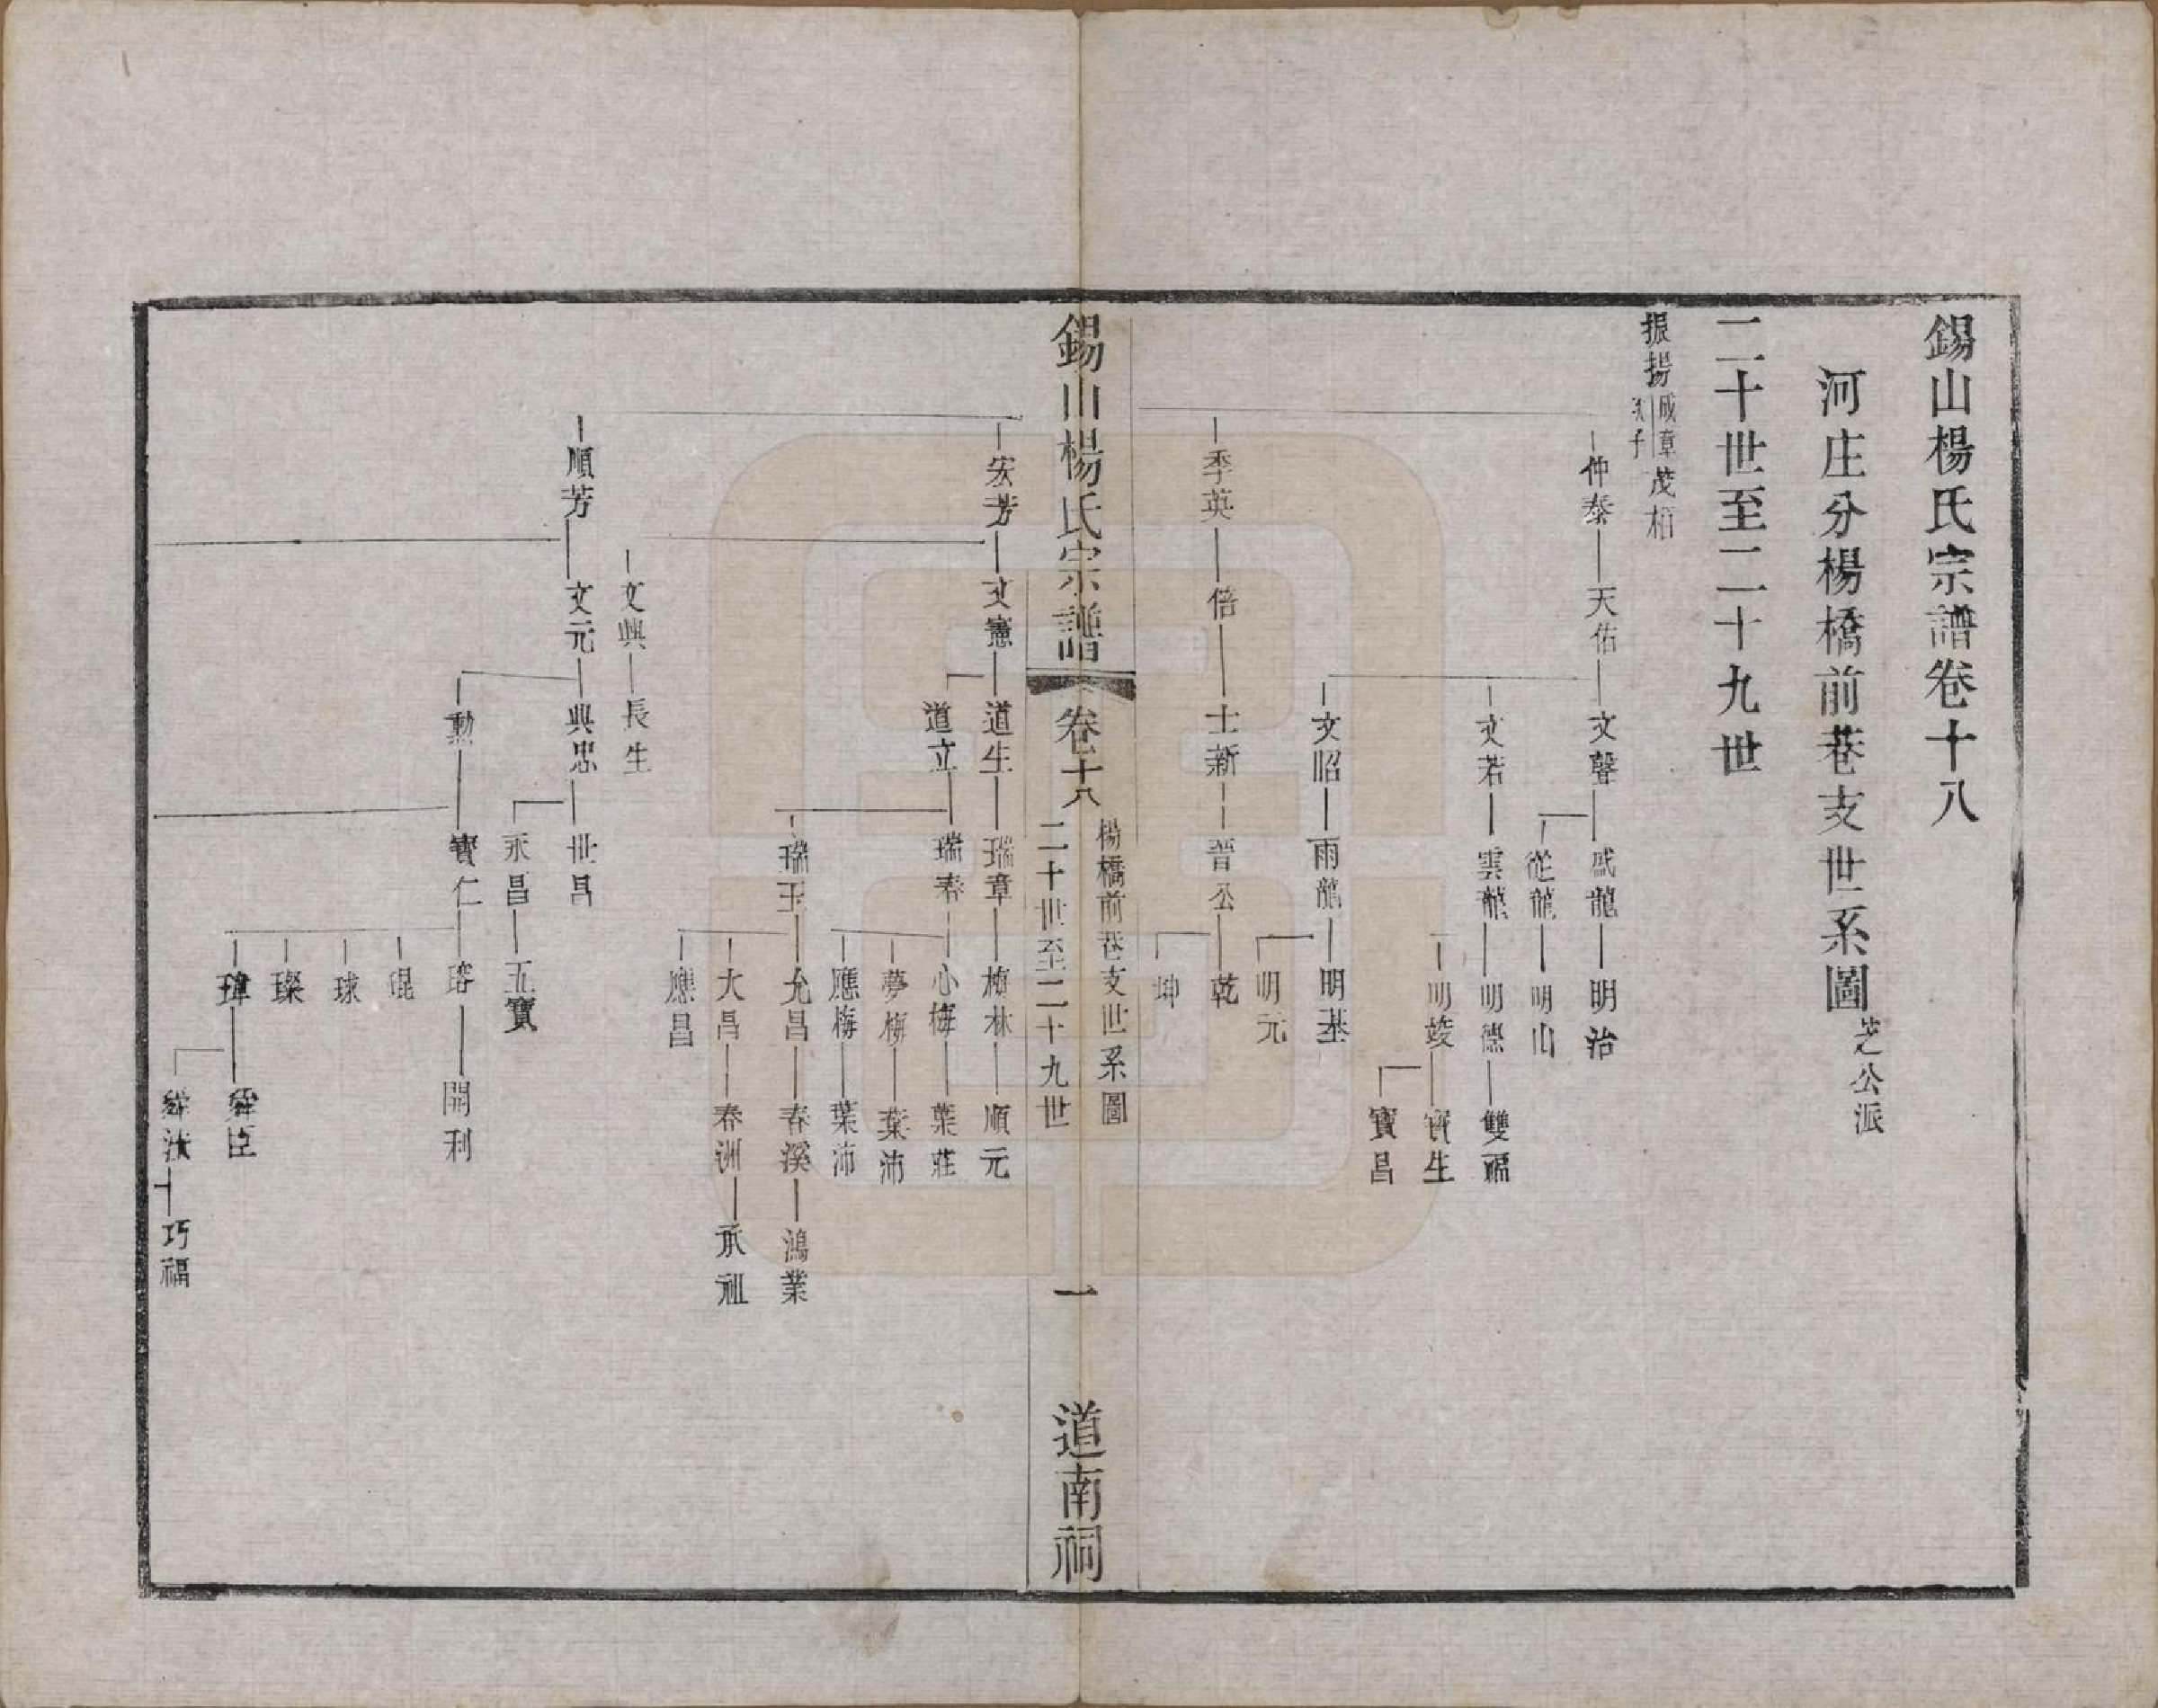 錫山楊氏宗譜卷十八
河庄分楊橋前巷支世系圖 芝公派
二十世至二十九世
振揚 成章次子 茂相
仲泰 天佑 文馨 盛龍 明治
從龍 明山
文若 雲龍 明德 雙福
明竣 寶生
寶昌
文昭 雨龍 明基
明元
季英 倍 士新 晉公 乾
坤
錫山楊氏宗譜 卷十八
楊橋前巷支世系圖
二十世至二十九世
一
道南祠
宏芳 文憲 道生 瑞章 梅林 順元
道立 瑞春 心梅 葉莊
夢梅 葉沛
應梅 葉沛
瑞玉 允昌 春溪 鴻業
大昌 春洲 承祖
應昌
文興 長生
順芳 文元 典忠 世昌
永昌 五寶
勳 寶仁 瑢 開利
琨
球
璨
瑋 舜臣
舜法 巧福